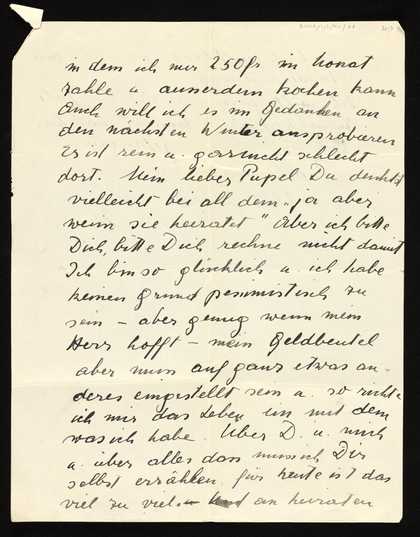 in dem ich nur 250 fr im Monat
zahle u. ausserdem kochen kann
Auch will ich es im Gedanken an
den nächsten Winter ausprobieren
Es ist rein u. gar nicht schlecht
dort. Mein lieber Pupel Du denkst
vielleicht bei all dem „ja aber
wenn sie heiratet" Aber ich bitte
Dich, bitte Dich, rechne nicht damit
Ich bin so glücklich u. ich habe
keinen Grund pessimistisch zu
sein – aber genug wenn mein
Herz hofft – mein Geldbeutel
aber muss auf ganz etwas an-
deres eingestellt sein u. so richte
ich mir das Leben ein mit dem
was ich habe. Über D. u. mich
u. über alles das muss ich Dir
selbst erzählen, für heute ist das
viel zu viel – an heiraten